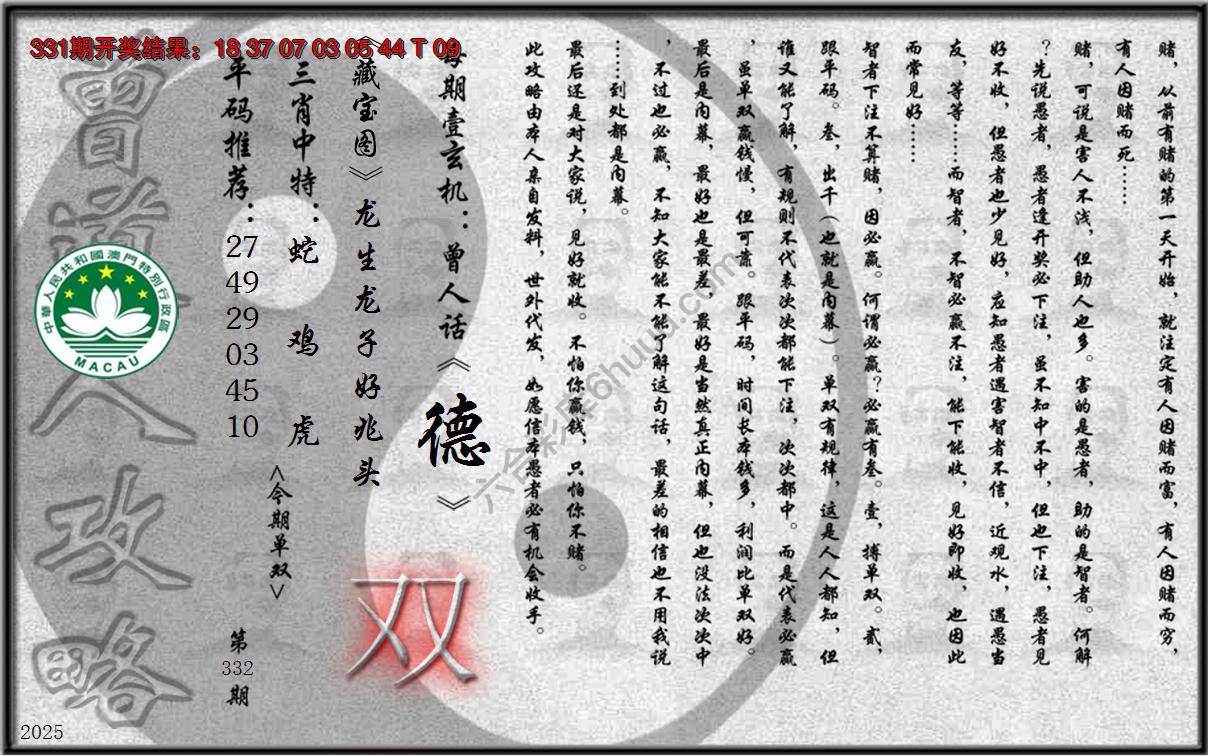 331期开奖结果：18 37 07 03 05 44 T 09
赌，从前有赌的第一天开始，就注定有人因赌而富，有人因赌而穷，
有人因赌而死……
赌，可说是害人不浅，但助人也多。害的是愚者，助的是智者。何解
？先说愚者，愚者逢开奖必下注，虽不知中不中，但也下注，愚者见
好不收，但愚者也少见好，应知愚者遇害智者不信，近观水，遇愚当
友，等等……而智者，不智必赢不注，能下能收，见好即收，也因此
而常见好……
智者下注不算赌，因必赢。何谓必赢？必赢有叁。壹，搏单双。贰，
跟平码。叁，出千（也就是内幕）。单双有规律，这是人人都知，但
谁又能了解，有规则不代表次次都能下注，次次都中。而是代表必赢
，虽单双赢钱慢，但可靠。跟平码，时间长本钱多，利润比单双好。
最后是内幕，最好也是最差，最好是当然真正内幕，但也没法次次中
，不过也必赢，不知大家能不能了解这句话，最差的相信也不用我说
……到处都是内幕。
最后还是对大家说，见好就收。不怕你赢钱，只怕你不赌。
此攻略由本人亲自发料，世外代发，如愿信本愚者必有机会收手。
每期壹玄机：曾人话《德》
《藏宝图》龙生龙子好兆头
三肖中特：蛇 鸡 虎
平码推荐：27 49 29 03 45 10
<今期单双>
双
第332期
曾道人攻略
中華人民共和國澳門特別行政區
MACAU
2025